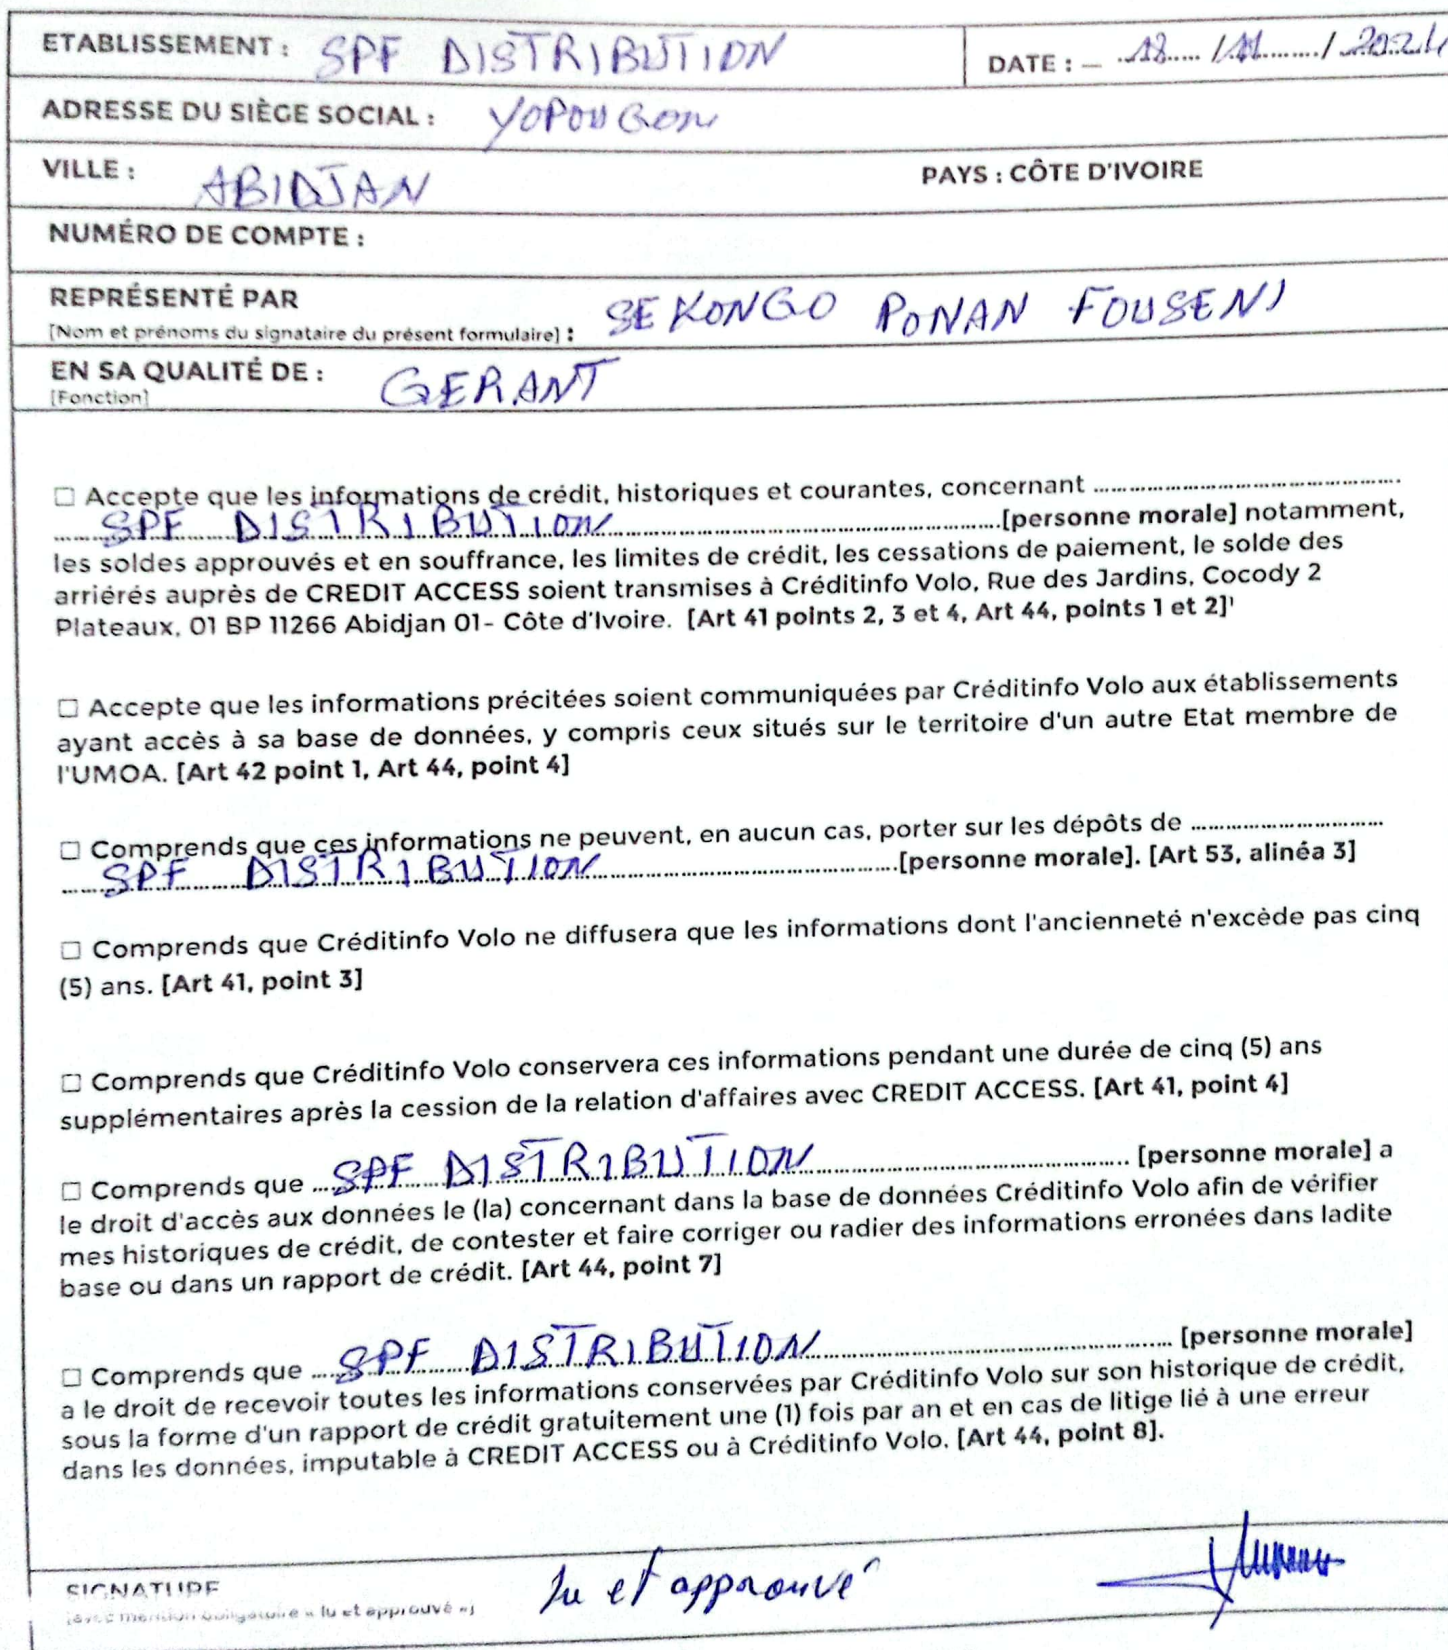 ETABLISSEMENT : SPF DISTRIBUTION DATE : – 18 / 11 / 2024
ADRESSE DU SIÈGE SOCIAL : YOPOUGON
VILLE : ABIDJAN PAYS : CÔTE D'IVOIRE
NUMÉRO DE COMPTE :
REPRÉSENTÉ PAR
[Nom et prénoms du signataire du présent formulaire] : SEKONGO PONAN FOUSENI
EN SA QUALITÉ DE : GERANT
[Fonction]
☐ Accepte que les informations de crédit, historiques et courantes, concernant ..........
SPF DISTRIBUTION ..........[personne morale] notamment,
les soldes approuvés et en souffrance, les limites de crédit, les cessations de paiement, le solde des
arriérés auprès de CREDIT ACCESS soient transmises à Créditinfo Volo, Rue des Jardins, Cocody 2
Plateaux, 01 BP 11266 Abidjan 01- Côte d'Ivoire. [Art 41 points 2, 3 et 4, Art 44, points 1 et 2]'
☐ Accepte que les informations précitées soient communiquées par Créditinfo Volo aux établissements
ayant accès à sa base de données, y compris ceux situés sur le territoire d'un autre Etat membre de
l'UMOA. [Art 42 point 1, Art 44, point 4]
☐ Comprends que ces informations ne peuvent, en aucun cas, porter sur les dépôts de ..........
SPF DISTRIBUTION ..........[personne morale]. [Art 53, alinéa 3]
☐ Comprends que Créditinfo Volo ne diffusera que les informations dont l'ancienneté n'excède pas cinq
(5) ans. [Art 41, point 3]
☐ Comprends que Créditinfo Volo conservera ces informations pendant une durée de cinq (5) ans
supplémentaires après la cession de la relation d'affaires avec CREDIT ACCESS. [Art 41, point 4]
☐ Comprends que SPF DISTRIBUTION .......... [personne morale] a
le droit d'accès aux données le (la) concernant dans la base de données Créditinfo Volo afin de vérifier
mes historiques de crédit, de contester et faire corriger ou radier des informations erronées dans ladite
base ou dans un rapport de crédit. [Art 44, point 7]
☐ Comprends que SPF DISTRIBUTION .......... [personne morale]
a le droit de recevoir toutes les informations conservées par Créditinfo Volo sur son historique de crédit,
sous la forme d'un rapport de crédit gratuitement une (1) fois par an et en cas de litige lié à une erreur
dans les données, imputable à CREDIT ACCESS ou à Créditinfo Volo. [Art 44, point 8].
SIGNATURE lu et approuvé
[avec mention obligatoire « lu et approuvé »]